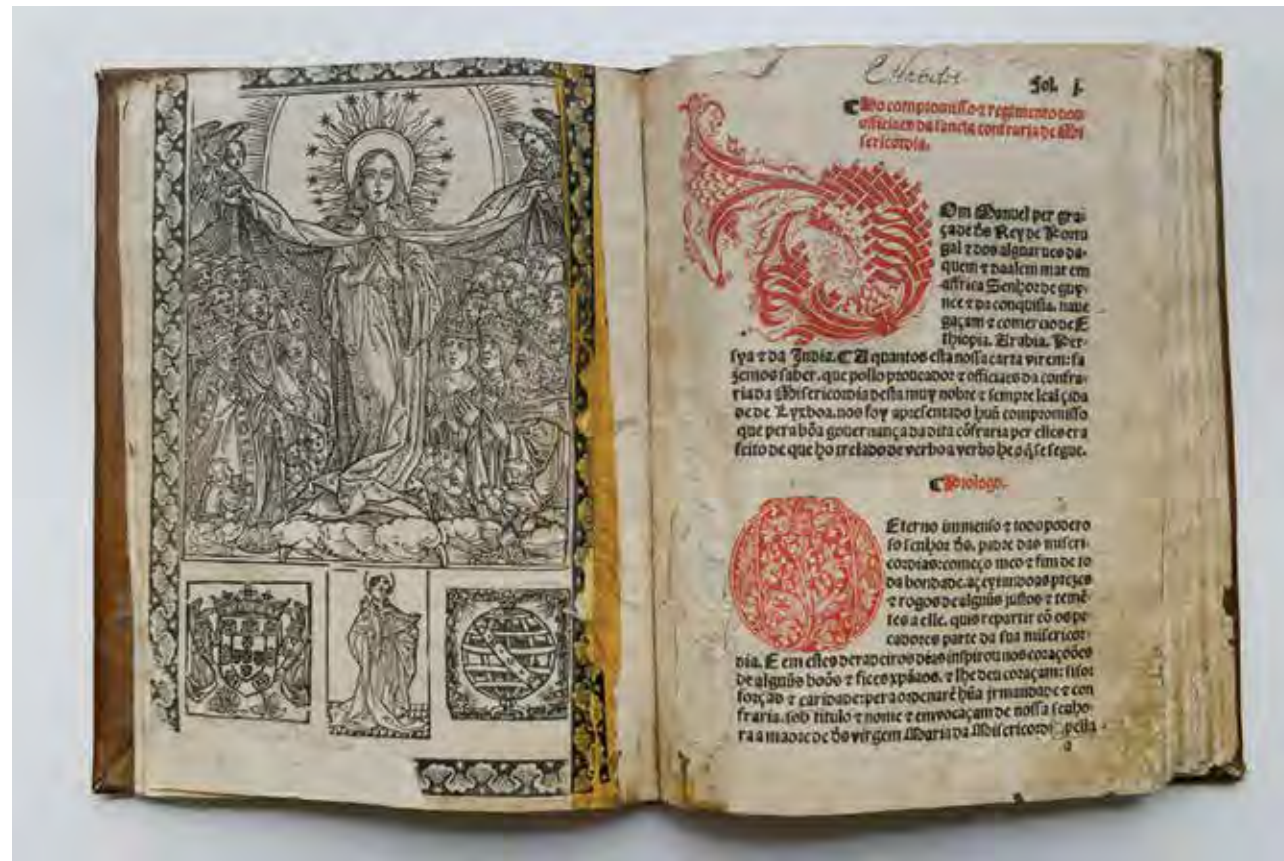 Fol. j.
¶ Do compromisso ⁊ regimento dos
officiaes da sancta confraria de Mi
sericordia.
Om Manuel per gra
ça de d̃s Rey de Portu
gal ⁊ dos algarues da
quem ⁊ daalem mar em
affrica Senhor de guy
nee ⁊ da conquista, naue
gaçam ⁊ comercio de E
thiopia. Arabia. Per
sya ⁊ da India. ¶ A quantos esta nossa carta virem: fa
zemos saber, que pollo proueador ⁊ officiaes da confra
ria da Misericordia desta muy nobre ⁊ sempre leal çida
de de Lyxboa, nos foy apresentado huũ compromisso
que pera bõa gouernança da dita cõfraria per elles era
feito de que ho trelado de verbo a verbo he o q̃ se segue.
¶ Prologo.
Eterno immenso ⁊ todo podero
so senhor d̃s, padre das miseri
cordias: começo meo ⁊ fim de to
da bondade, açeytando as prezes
⁊ rogos de alguũs justos ⁊ temẽ
tes a elle, quis repartir cõ os pe
cadores parte da sua misericor
dia. E em estes deradeiros dias inspirou nos corações
de alguũs boõs ⁊ fiees xp̃ãos, ⁊ lhe deu coraçam: siso:
forças ⁊ caridade: pera ordenarẽ hũa jrmandade ⁊ con
fraria, sob titulo ⁊ nome ⁊ enuocaçam de nossa senho
ra a madre de d̃s virgem Maria da Misericordi pella
a